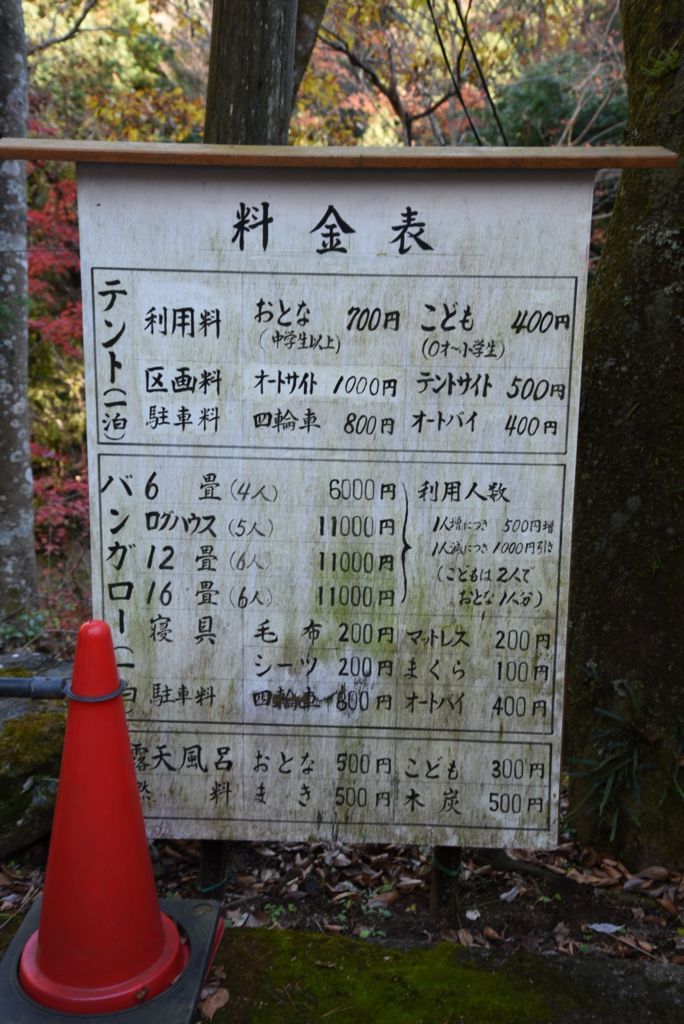 料金表
テント(一泊)
利用料 おとな 700円 こども 400円
(中学生以上) (0才〜小学生)
区画料 オートサイト 1000円 テントサイト 500円
駐車料 四輪車 800円 オートバイ 400円
バンガロー(一泊)
6畳(4人) 6000円 利用人数
ログハウス(5人) 11000円 1人増につき 500円増
12畳(6人) 11000円 1人減につき 1000円引き
16畳(6人) 11000円 (こどもは2人で
おとな1人分)
寝具 毛布 200円 マットレス 200円
シーツ 200円 まくら 100円
駐車料 四輪車 800円 オートバイ 400円
露天風呂 おとな 500円 こども 300円
燃料 まき 500円 木炭 500円